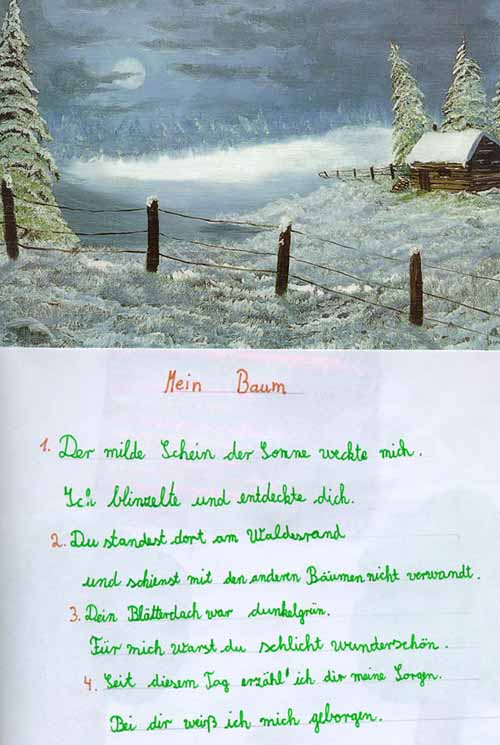 Mein Baum
1. Der milde Schein der Sonne weckte mich.
Ich blinzelte und entdeckte dich.
2. Du standest dort am Waldesrand
und schienst mit den anderen Bäumen nicht verwandt.
3. Dein Blätterdach war dunkelgrün.
Für mich warst du schlicht wunderschön.
4. Seit diesem Tag erzähl' ich dir meine Sorgen.
Bei dir weiß ich mich geborgen.